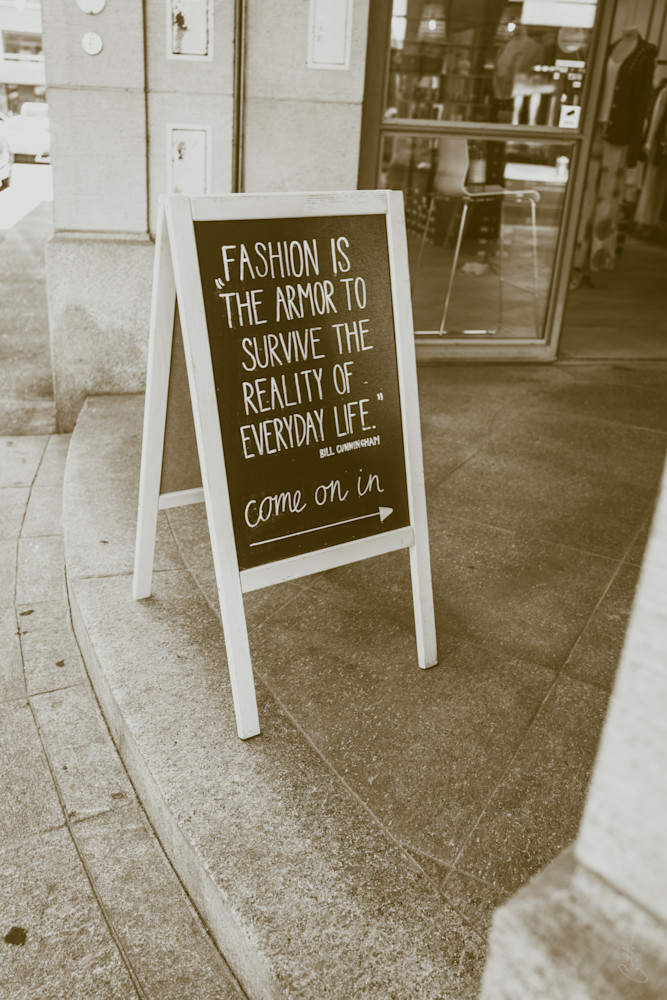 „FASHION IS
THE ARMOR TO
SURVIVE THE
REALITY OF
EVERYDAY LIFE.”
BILL CUNNINGHAM
come on in